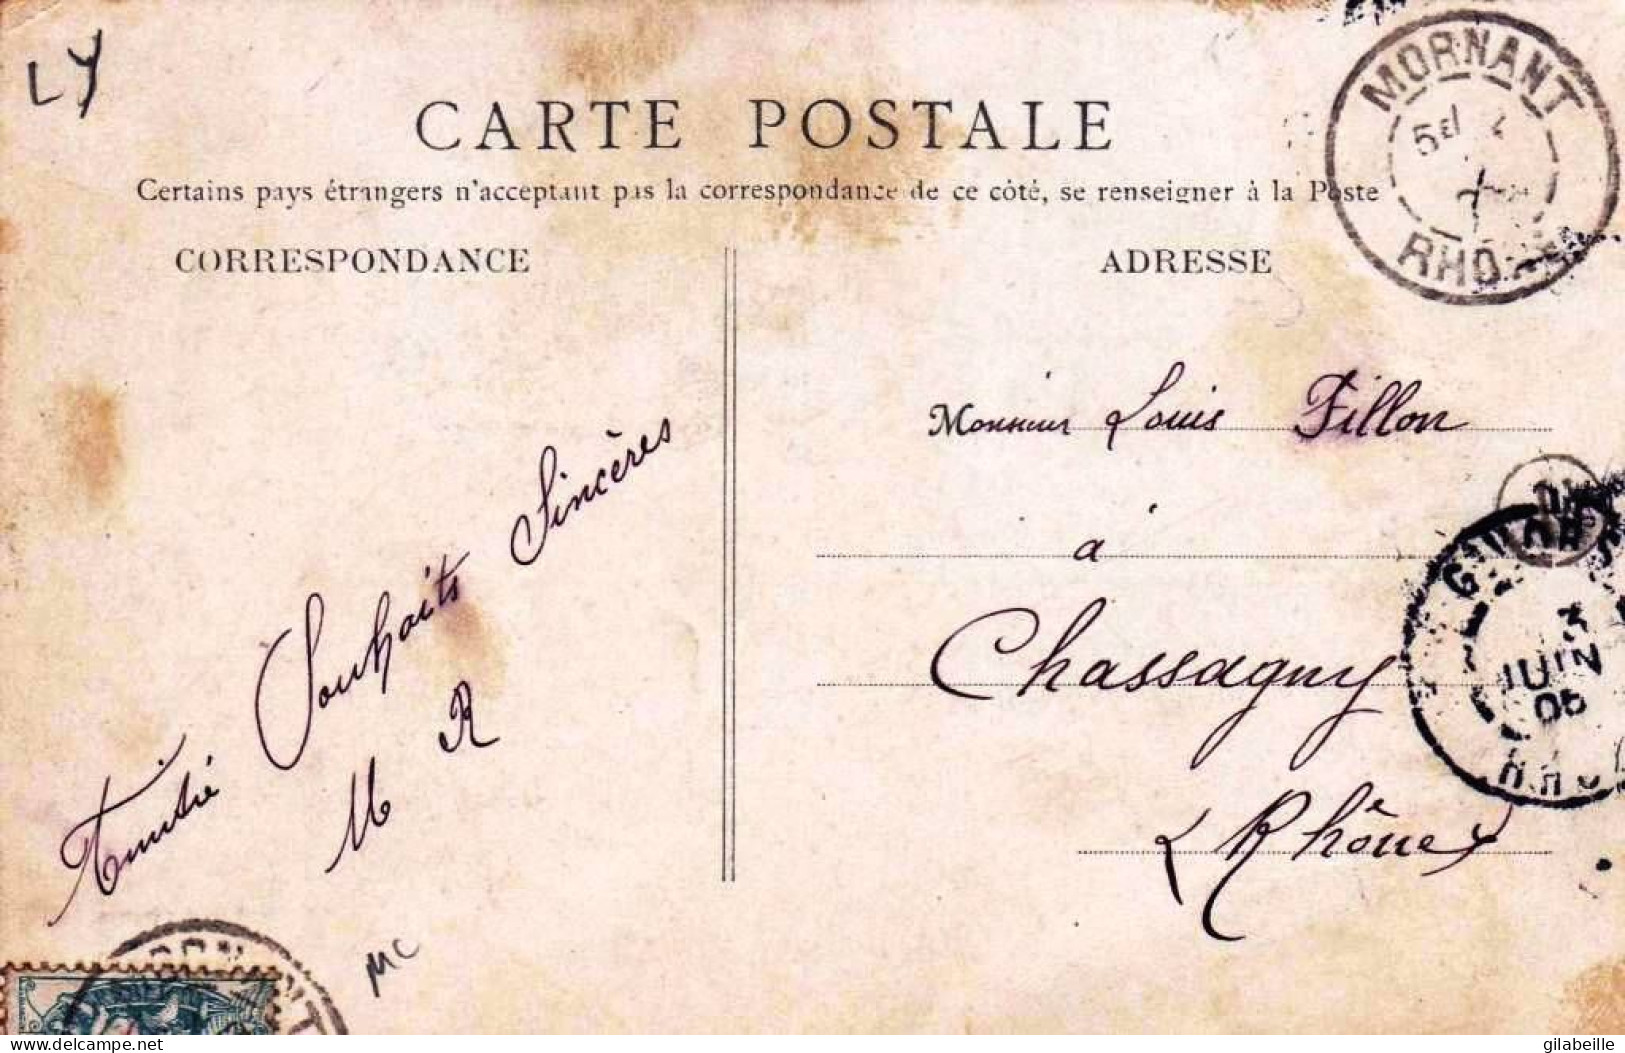 LY
CARTE POSTALE
Certains pays étrangers n'acceptant pas la correspondance de ce côté, se renseigner à la Poste
CORRESPONDANCE
ADRESSE
MORNANT
RHÔNE
Amitié Souhaits Sincères
M R
Monsieur Louis Fillon
à
Chassagny
(Rhône)
GIVORS
3
JUIN
06
RHÔ
MC
delcampe.net
gilabeille